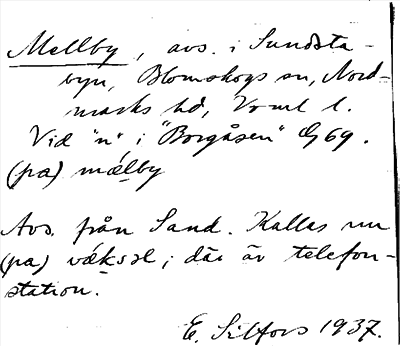 Mellby, avs. i Sundsta-
byn, Blomskogs sn, Nord-
marks hd, Vrml l.
Vid "n" i "Borgåsen" G 69.
(pa) mälby
Avs. från Sand. Kallas nu
(pa) väksel; där är telefon-
station.
E. Silfors 1937.